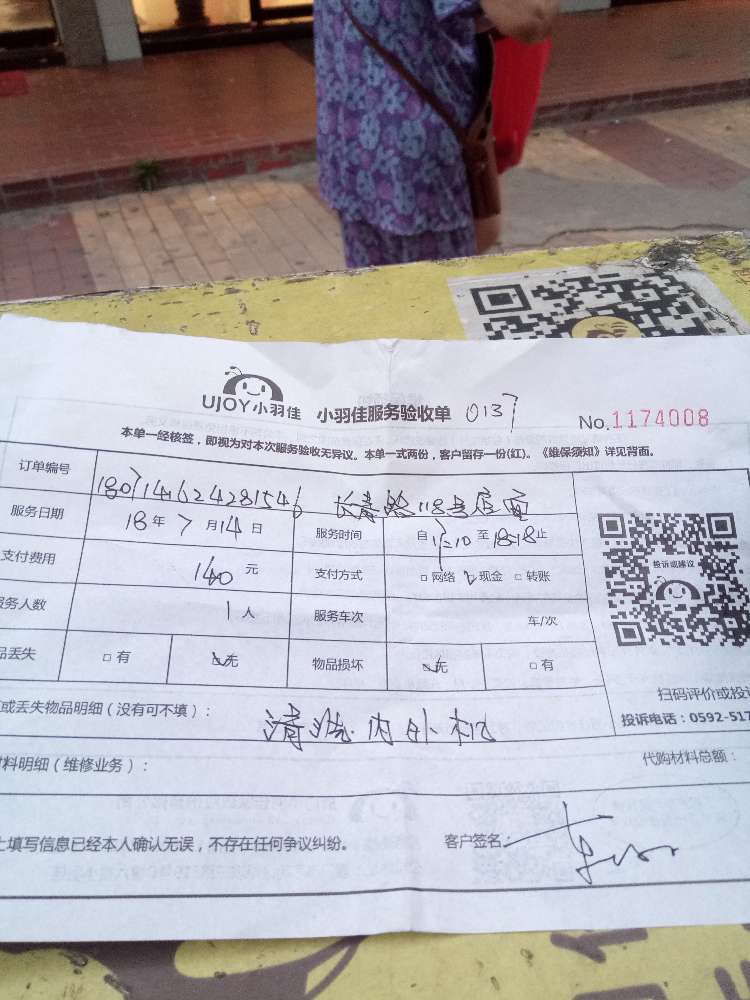 UJOY小羽佳 小羽佳服务验收单 0137 No.1174008
本单一经核签，即视为对本次服务验收无异议。本单一式两份，客户留存一份(红)。《维保须知》详见背面。
订单编号 180714162428154 长青路118号店面
服务日期 18年7月14日 服务时间 自 :10至18:18止
支付费用 140元 支付方式 网络 现金 转账
服务人数 1人 服务车次 车/次
品丢失 有 无 物品损坏 无 有
投诉或建议
扫码评价或投
或丢失物品明细（没有可不填）： 清洗内外机
投诉电话：0592-517
料明细（维修业务）： 代购材料总额：
上填写信息已经本人确认无误，不存在任何争议纠纷。 客户签名：